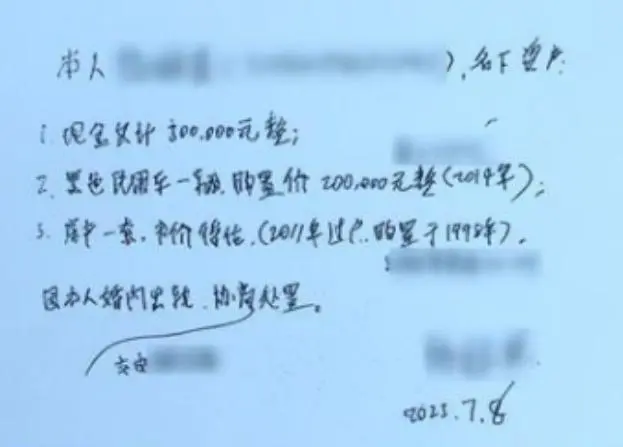 本人 ），名下资产：
1. 现金共计 300,000元整；
2. 黑色民用车一辆，购置价 200,000元整（2014年）；
3. 房产一套，市价待估，（2011年过户，购置于1998年），
因本人婚内出轨， 处置。
交由
2023.7.8